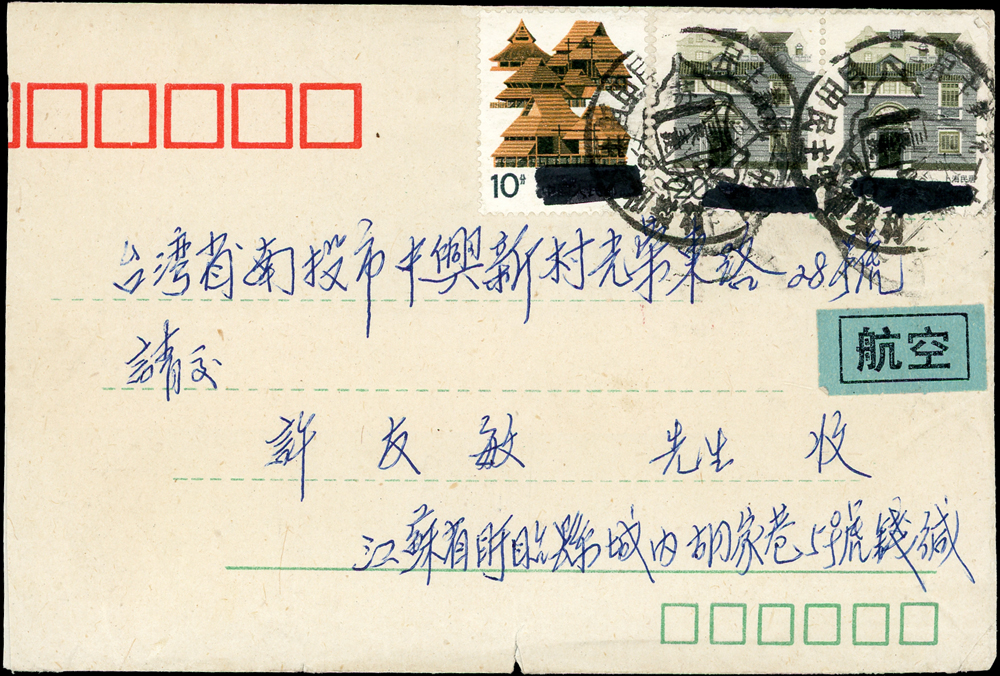 10分
航空
台湾省南投市中興新村光荣東路28號
請交
許友敏 先生 收
江蘇省盱眙縣城内胡家巷5號錢緘